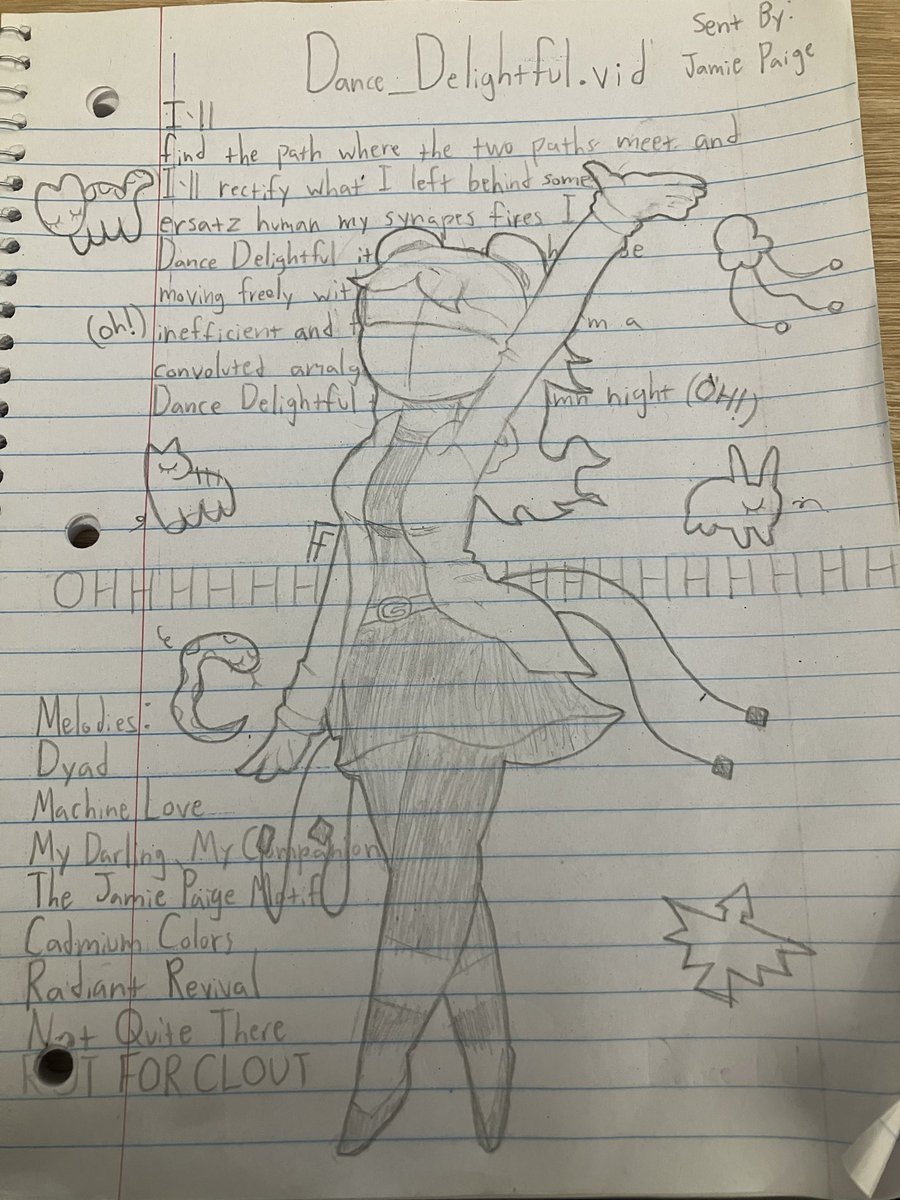 Sent By:
Jamie Paige
Dance_Delightful.vid
I'll
find the path where the two paths meet and
I'll rectify what I left behind some
ersatz human my synapes fires I
Dance Delightful it
moving freely wit
(oh!) inefficient and m a
convoluted
Dance Delightful night (OH!)
OHHHHHHH HHHHHHHHHHH
Melodies:
Dyad
Machine Love
My Darling, My Companion
The Jamie Paige Motif
Cadmium Colors
Radiant Revival
Not Quite There
FOR CLOUT